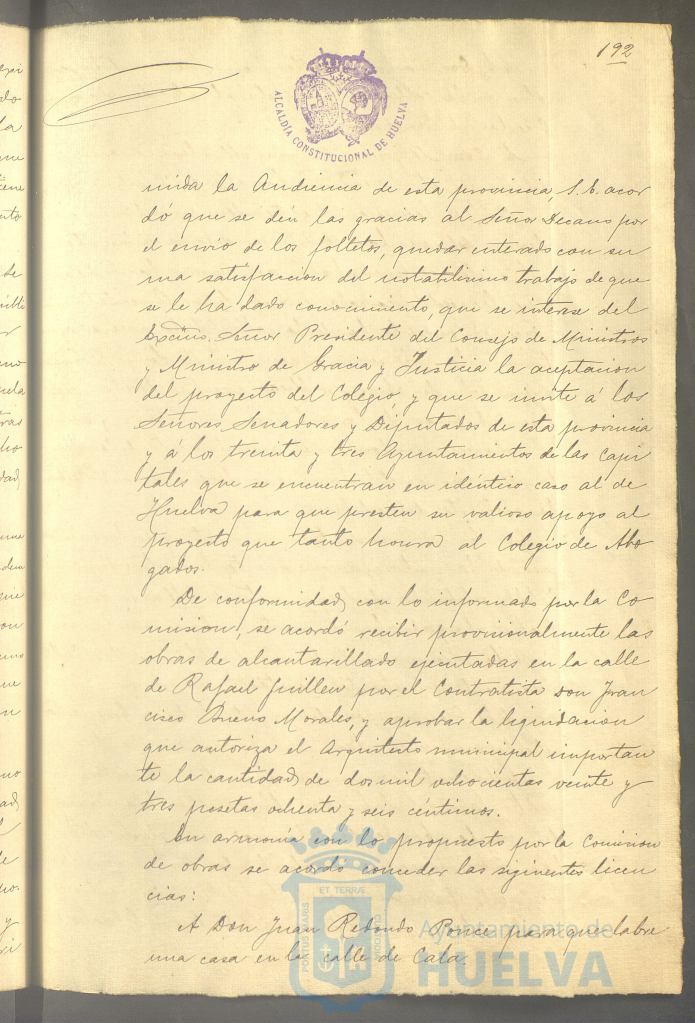 192
ALCALDÍA CONSTITUCIONAL DE HUELVA
mida la Audiencia de esta provincia, S. E. acor
dó que se den las gracias al Señor Decano por
el envio de los folletos, quedar enterado con su
ma satisfaccion del notabilisimo trabajo de que
se le ha dado conocimiento, que se interese del
Excmo. Señor Presidente del Consejo de Ministros
y Ministro de Gracia y Justicia la aceptacion
del proyecto del Colegio, y que se invite á los
Señores Senadores y Diputados de esta provincia
y á los treinta y tres Ayuntamientos de las Capi
tales que se encuentran en idéntico caso al de
Huelva para que presten su valioso apoyo al
proyecto que tanto honra al Colegio de Abo
gados.
De conformidad con lo informado por la Co
mision, se acordó recibir provisionalmente las
obras de alcantarillado ejecutadas en la calle
de Rafael Guillen por el Contratista Don Fran
cisco Bueno Morales, y aprobar la liquidacion
que autoriza el Arquitecto municipal importan
te la cantidad de dos mil ochocientas veinte y
tres pesetas ochenta y seis céntimos.
En armonía con lo propuesto por la Comision
de obras se acordó conceder las siguientes licen
cias:
A Don Juan Redondo Ponce para que labre
una casa en la calle de Cala.
PORTUS MARIS ET TERRÆ CUSTODIA
Ayuntamiento de
HUELVA